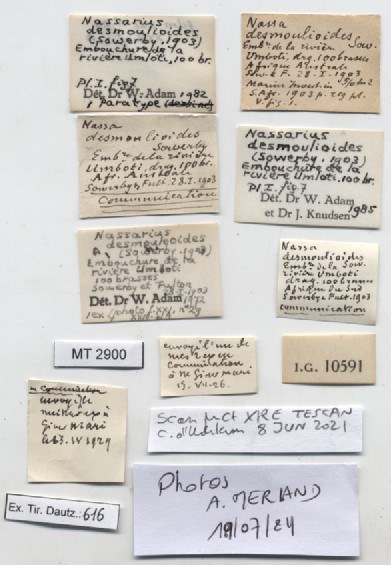 Nassarius
desmoulioides
(Sowerby, 1903)
Embouchure de la
rivière Umloti, 100 br.
Pl. I. fig 7
Dét. Dr W. Adam 1982
1 Paratype
Nassa
desmoulioides
Sow.
Embre de la rivière
Umloti, drag. 100 brasses
Afrique Australe
Sow. & F. 28-I-1903
Marine Invest. in
S. Afr. 1903 p. 229 pl.
V. fig. 1.
Nassa
desmoulioides
Sowerby
Embre de la rivière
Umboti, drag. 100 br.
Afr. Australe
Sowerby & Fult. 28.I.1903
Communication
Nassarius
desmoulioides
(Sowerby, 1903)
Embouchure de la
rivière Umloti, 100 br.
Pl. I. fig. 7
Dét. Dr W. Adam
et Dr J. Knudsen
1985
Nassarius
desmoulioides
(Sowerby, 1903)
Embouchure de la
rivière Umboti
100 brasses
Sowerby et Fulton
28-I-1903
Dét. Dr W. Adam 1972
1 ex
Nassa
desmoulioides
Embre de la Sow.
rivière Umboti
drag. 100 brasses
Afrique du Sud
Sowerby & Fult. 1903
Communication
MT 2900
envoyé l'un de
mes
Communication
à
13. VII. 26.
I.G. 10591
Communication
envoyé
IV 1929
Scan µCT XRE TESCAN
8 JUN 2021
Photos
A. MERIAND
19/07/24
Ex. Tir. Dautz.: 616